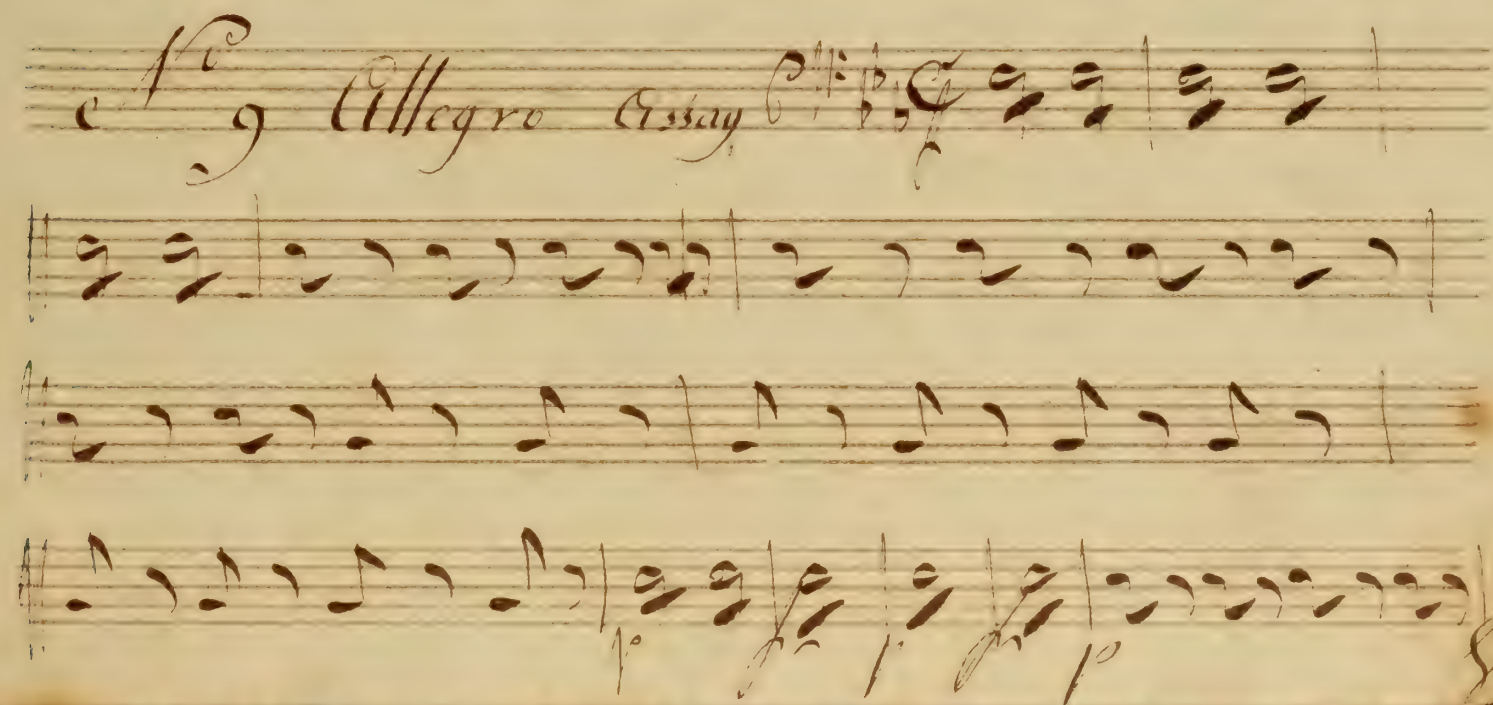 No 9 Allegro Assay
p f p f p